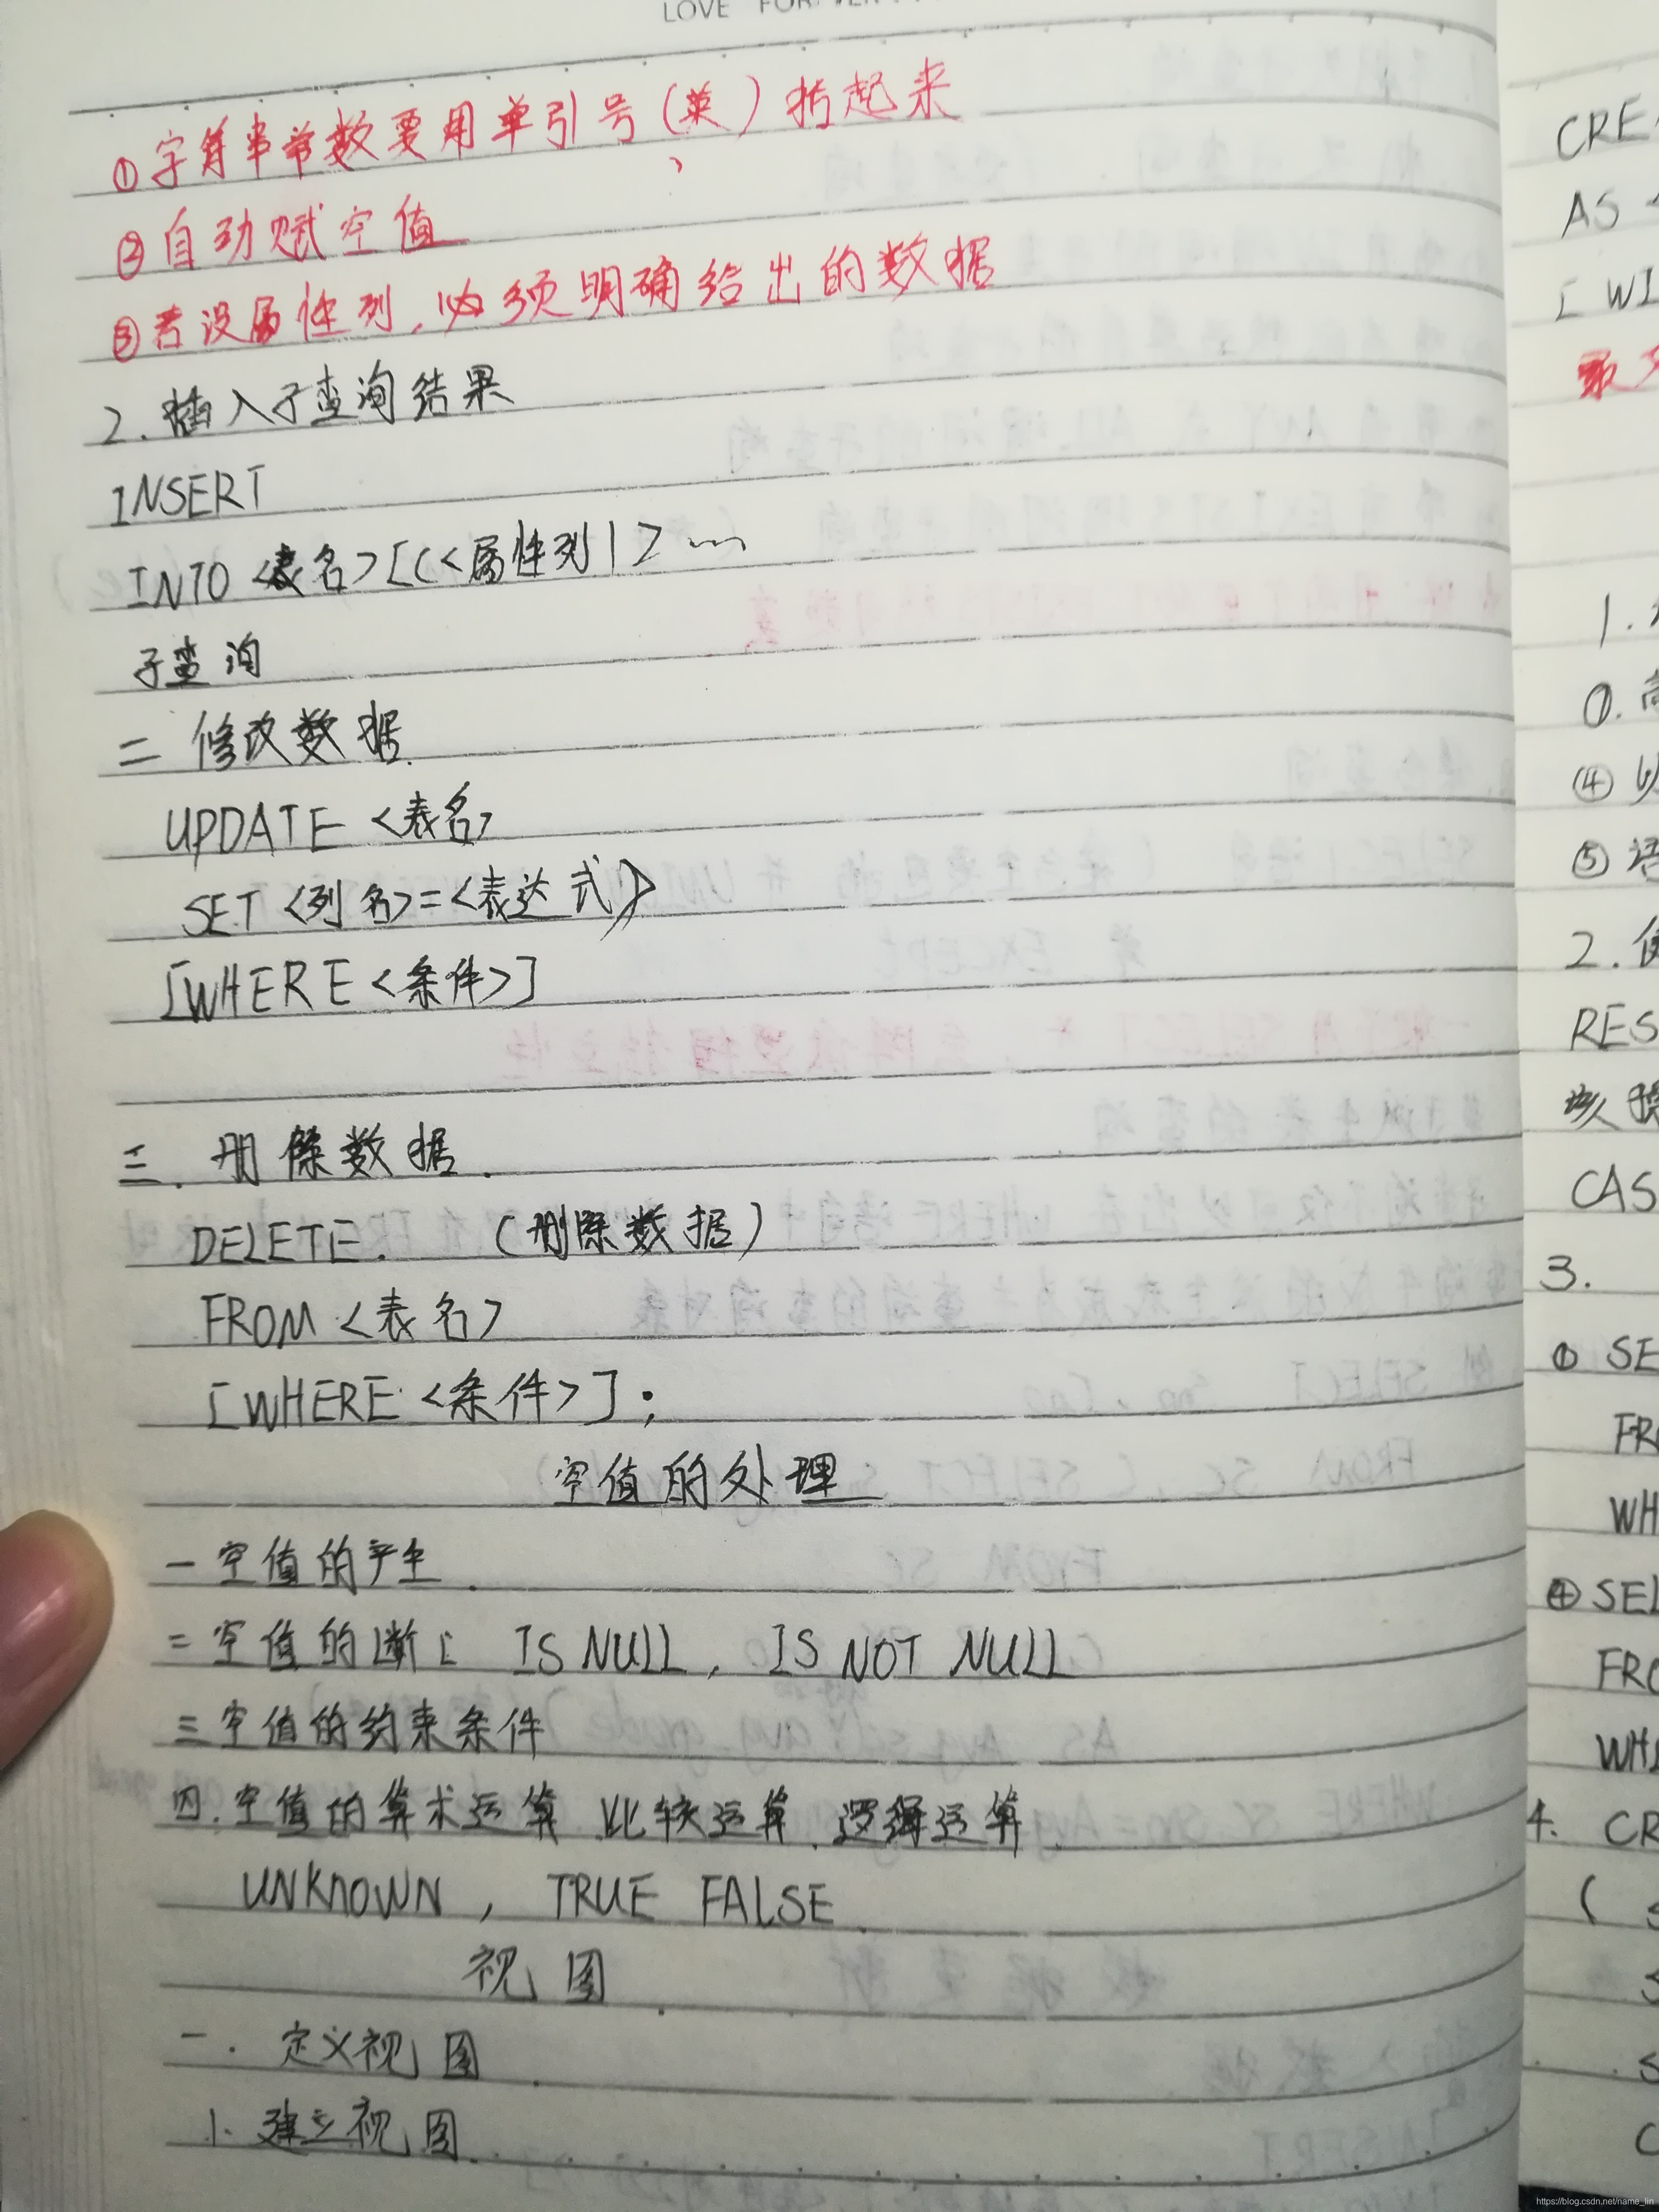 LOVE
①字符串常数要用单引号(英)括起来
②自动赋空值
③若没属性列,必须明确给出的数据
2.插入子查询结果
INSERT
INTO <表名>[(<属性列1> ...
子查询
二 修改数据.
UPDATE <表名>
SET <列名>=<表达式>
[WHERE <条件>]
三. 删除数据.
DELETE. (删除数据)
FROM <表名>
[WHERE <条件>];
空值的处理
一空值的产生.
二空值的断 IS NULL, IS NOT NULL
三空值的约束条件
四.空值的算术运算.比较运算.逻辑运算.
UNKNOWN, TRUE FALSE.
视图.
一. 定义视图.
1.建立视图.
CRE
AS
[ WI
1.
①.
④ 以
⑤
2.
RES
CAS
3.
① SE
FR
WH
④ SEL
FRO
WH
4. CR
(
https://blog.csdn.net/name_lin